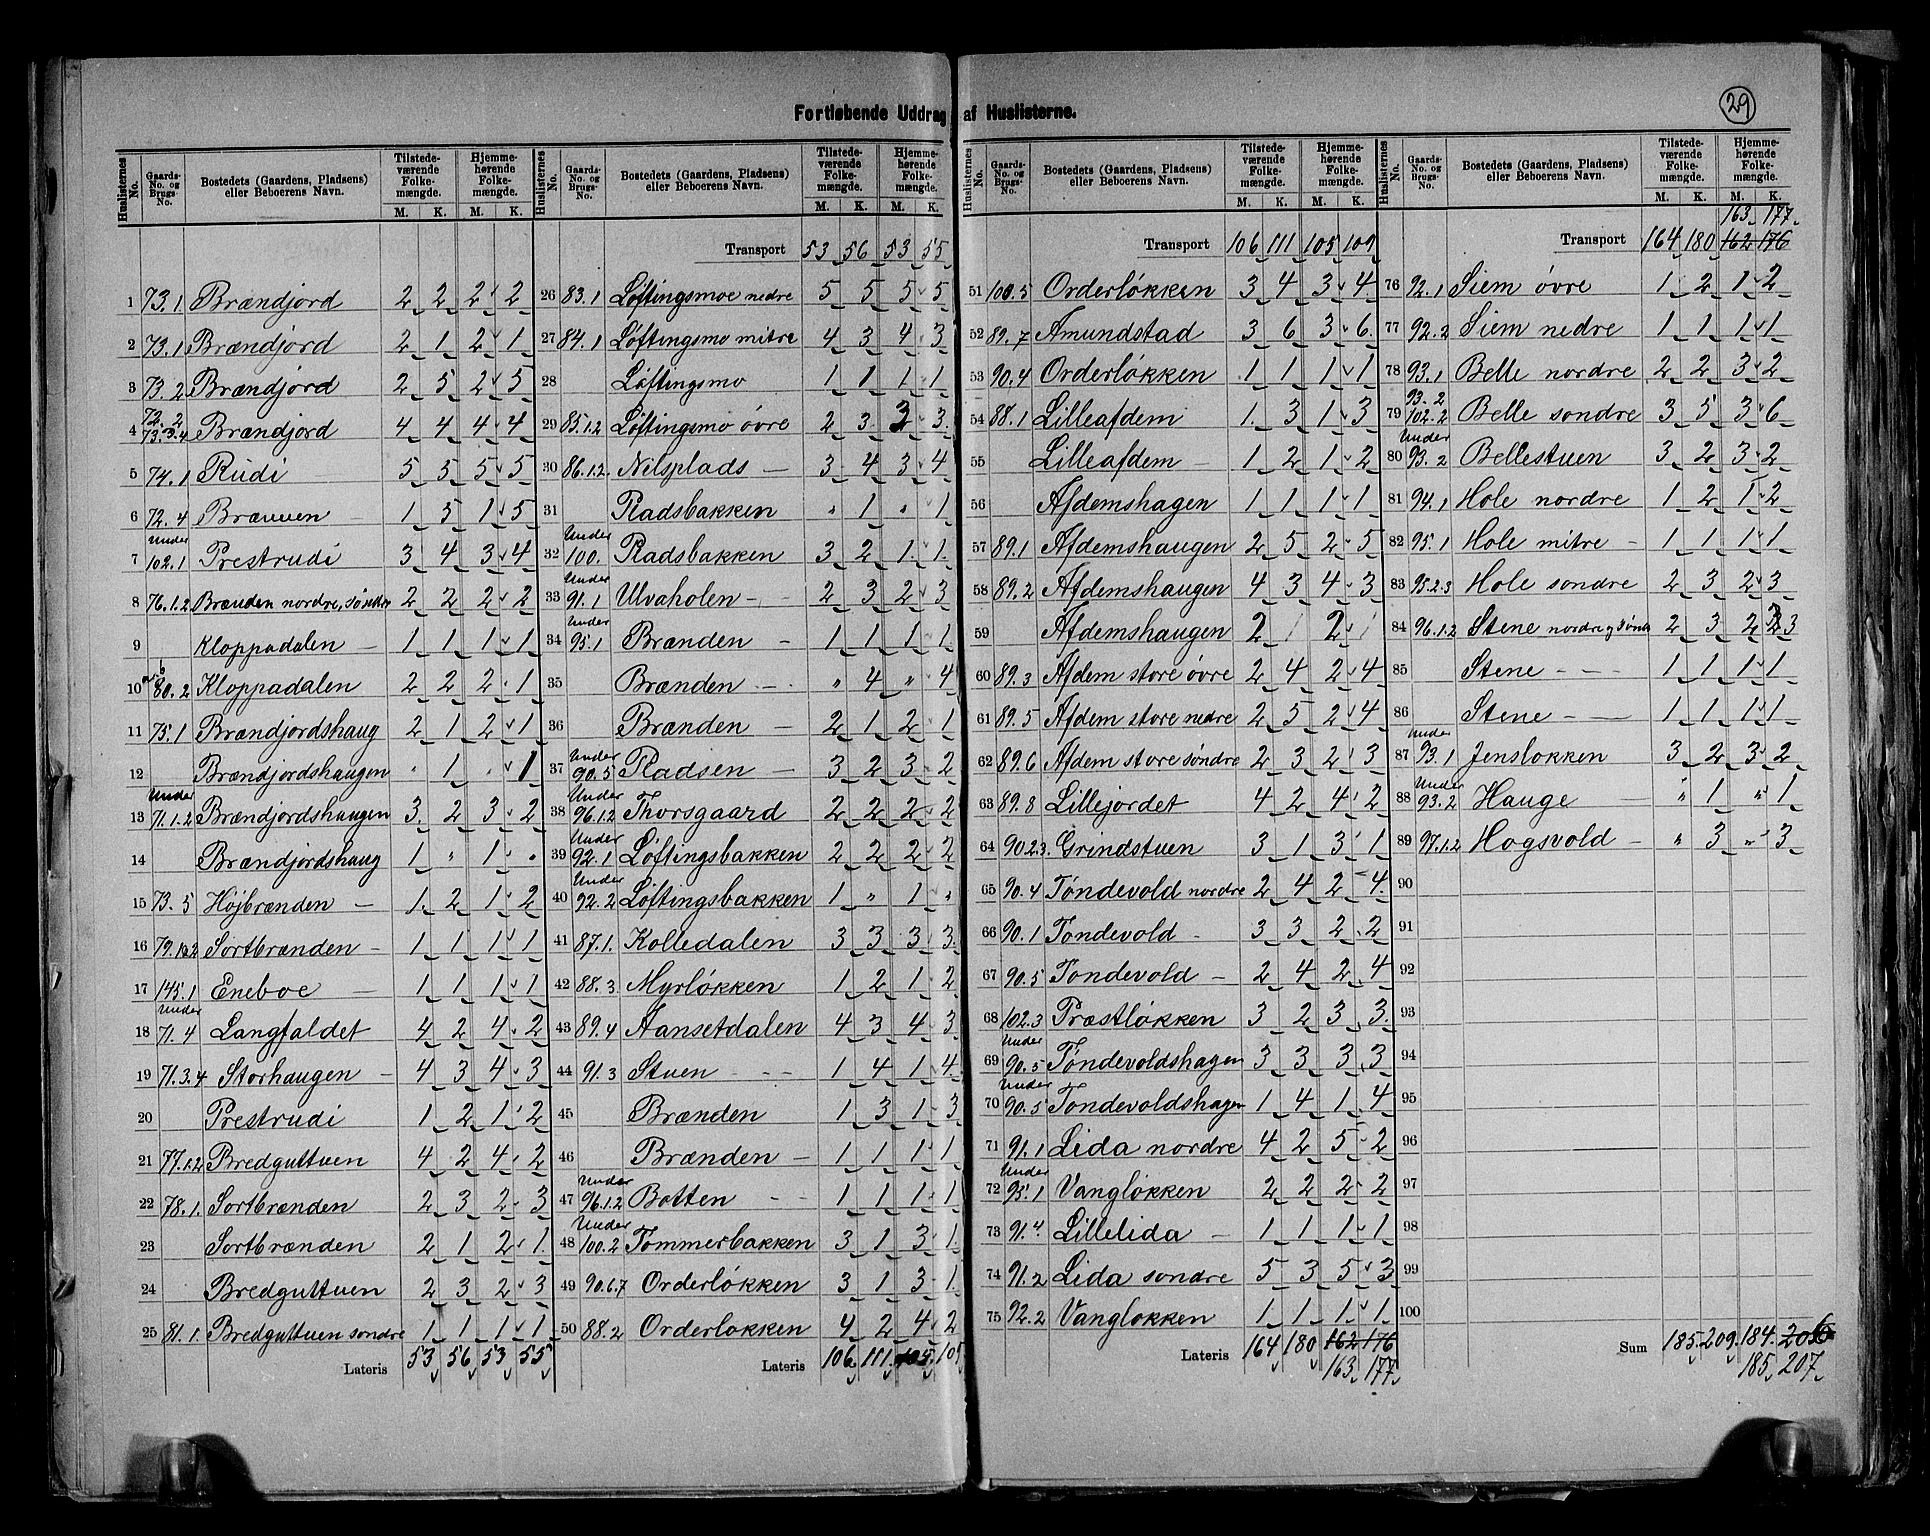 29
Fortløbende Uddrag af Huslisterne.
Huslisternes No. | Gaards-No. og Brugs-No. | Bostedets (Gaardens, Pladsens) eller Beboerens Navn. | Tilstedeværende Folkemængde. M. K. | Hjemmehørende Folkemængde. M. K.
1 73.1 Brændjord 2 2 2 2
2 73.1 Brændjord 2 1 2 1
3 73.2 Brændjord 2 5 2 5
4 72.2 73.3.4 Brændjord 4 4 4 4
5 74.1 Rudi 5 5 5 5
6 72.4 Brænnen 1 5 1 5
7 Under 102.1 Prestrudi 3 4 3 4
8 76.1.2 Brænden nordre, søndre 2 2 2 2
9 Kloppadalen 1 1 1 1
10 80.2 Kloppadalen 2 2 2 1
11 75.1 Brændjordshaug 2 1 2 1
12 Brændjordshaugen " 1 " 1
13 Under 71.1.2 Brændjordshaugen 3 2 3 2
14 Brændjordshaug 1 " 1 "
15 73.5 Højbrænden 1 2 1 2
16 79.1a2 Sortbrænden 1 1 1 1
17 145.1 Eneboe 1 1 1 1
18 Under 71.4 Langfaldet 4 2 4 2
19 71.3.4 Storhaugen 4 3 4 3
20 Prestrudi 1 2 1 2
21 77.1.2 Bredguttuen 4 2 4 2
22 78.1. Sortbrænden 2 3 2 3
23 Sortbrænden 2 1 2 1
24 Bredguttuen 2 3 2 3
25 81.1. Bredguttuen søndre 1 1 1 1
Lateris 53 56 53 55
Huslisternes No. | Gaards-No. og Brugs-No. | Bostedets (Gaardens, Pladsens) eller Beboerens Navn. | Tilstedeværende Folkemængde. M. K. | Hjemmehørende Folkemængde. M. K.
Transport 53 56 53 55
26 83.1 Løftingsmoe nedre 5 5 5 5
27 84.1 Løftingsmo mitre 4 3 4 3
28 Løftingsmo 1 1 1 1
29 85.1.2 Løftingsmo øvre 2 3 3 3
30 86.1.2. Nilsplads 3 4 3 4
31 Pladsbakken " 1 " 1
32 Under 100. Pladsbakken 3 2 1 1
33 Under 91.1 Ulvaholen 2 3 2 3
34 Under 95.1 Brænden 1 1 1 1
35 Brænden " 4 " 4
36 Brænden 2 1 2 1
37 Under 90.5 Pladsen 3 2 3 2
38 Under 96.1.2 Thorsgaard 2 2 2 2
39 Under 92.1 Løftingsbakken 2 2 2 2
40 Under 92.2 Løftingsbakken 1 " 1 "
41 87.1. Kolledalen 3 3 3 3
42 88.3. Myrløkken 1 2 1 2
43 89.4 Aansetdalen 4 3 4 3
44 91.3 Stuen 1 4 1 4
45 Brænden 1 3 1 3
46 Brænden 1 1 1 1
47 Under 96.1.2 Botten 1 1 1 1
48 Under 100.2 Tømmerbakken 3 1 3 1
49 90.6.7 Orderløkken 3 1 3 1
50 88.2 Orderløkken 4 2 4 2
Lateris 106 111 105 109
Huslisternes No. | Gaards-No. og Brugs-No. | Bostedets (Gaardens, Pladsens) eller Beboerens Navn. | Tilstedeværende Folkemængde. M. K. | Hjemmehørende Folkemængde. M. K.
Transport 106 111 105 109
51 100.5 Orderløkken 3 4 3 4
52 89.7 Amundstad 3 6 3 6
53 90.4 Orderløkken 1 1 1 1
54 88.1 Lilleafdem 1 3 1 3
55 Lilleafdem 1 2 1 2
56 Afdemshagen 1 1 1 1
57 89.1 Afdemshaugen 2 5 2 5
58 89.2 Afdemshaugen 4 3 4 3
59 Afdemshaugen 2 1 2 1
60 89.3 Afdem store øvre 2 4 2 4
61 89.5 Afdem store nedre 2 5 2 4
62 89.6 Afdem store søndre 2 3 2 3
63 89.8 Lillejordet 4 2 4 2
64 90.2.3. Grindstuen 3 1 3 1
65 90.4 Tøndevold nordre 2 4 2 4
66 90.1 Tøndevold 3 3 2 2
67 90.5 Tøndevold 2 4 2 4
68 102.3 Præstløkken 3 2 3 3
69 Under 90.5 Tøndevoldshagen 3 3 3 3
70 Under 90.5 Tøndevoldshagen 1 4 1 4
71 91.1 Lida nordre 4 2 5 2
72 Under 95.1 Vangløkken 2 2 2 2
73 91.4 Lillelida 1 1 1 1
74 91.2 Lida søndre 5 3 5 3
75 92.2 Vangløkken 1 1 1 1
Lateris 164 180 162 176
163 177
Huslisternes No. | Gaards-No. og Brugs-No. | Bostedets (Gaardens, Pladsens) eller Beboerens Navn. | Tilstedeværende Folkemængde. M. K. | Hjemmehørende Folkemængde. M. K.
163 177
Transport 164 180 162 176
76 92.1 Siem øvre 1 2 1 2
77 92.2 Siem nedre 1 1 1 1
78 93.1 Belle nordre 2 2 3 2
79 93.2 102.2 Belle søndre 3 5 3 6
80 Under 93.2 Bellestuen 3 2 3 2
81 94.1 Hole nordre 1 2 1 2
82 95.1 Hole mitre 1 1 1 1
83 95.2.3 Hole søndre 2 3 2 3
84 96.1.2 Stene nordre og søndre 2 3 2 3
85 Stene 1 1 1 1
86 Stene 1 1 1 1
87 Under 93.1 Jensløkken 3 2 3 2
88 Under 93.2 Hauge " 1 " 1
89 97.1.2 Hogsvold " 3 " 3
90
91
92
93
94
95
96
97
98
99
100
Sum 185 209 184 206
185 207